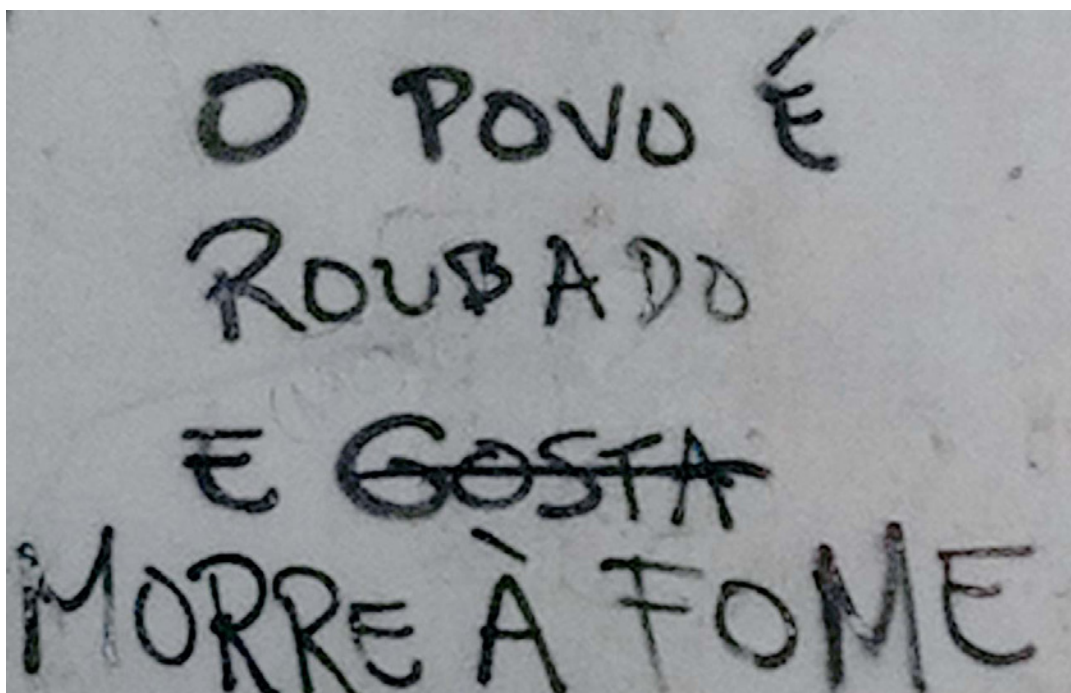 O POVO É
ROUBADO
E GOSTA
MORRE À FOME